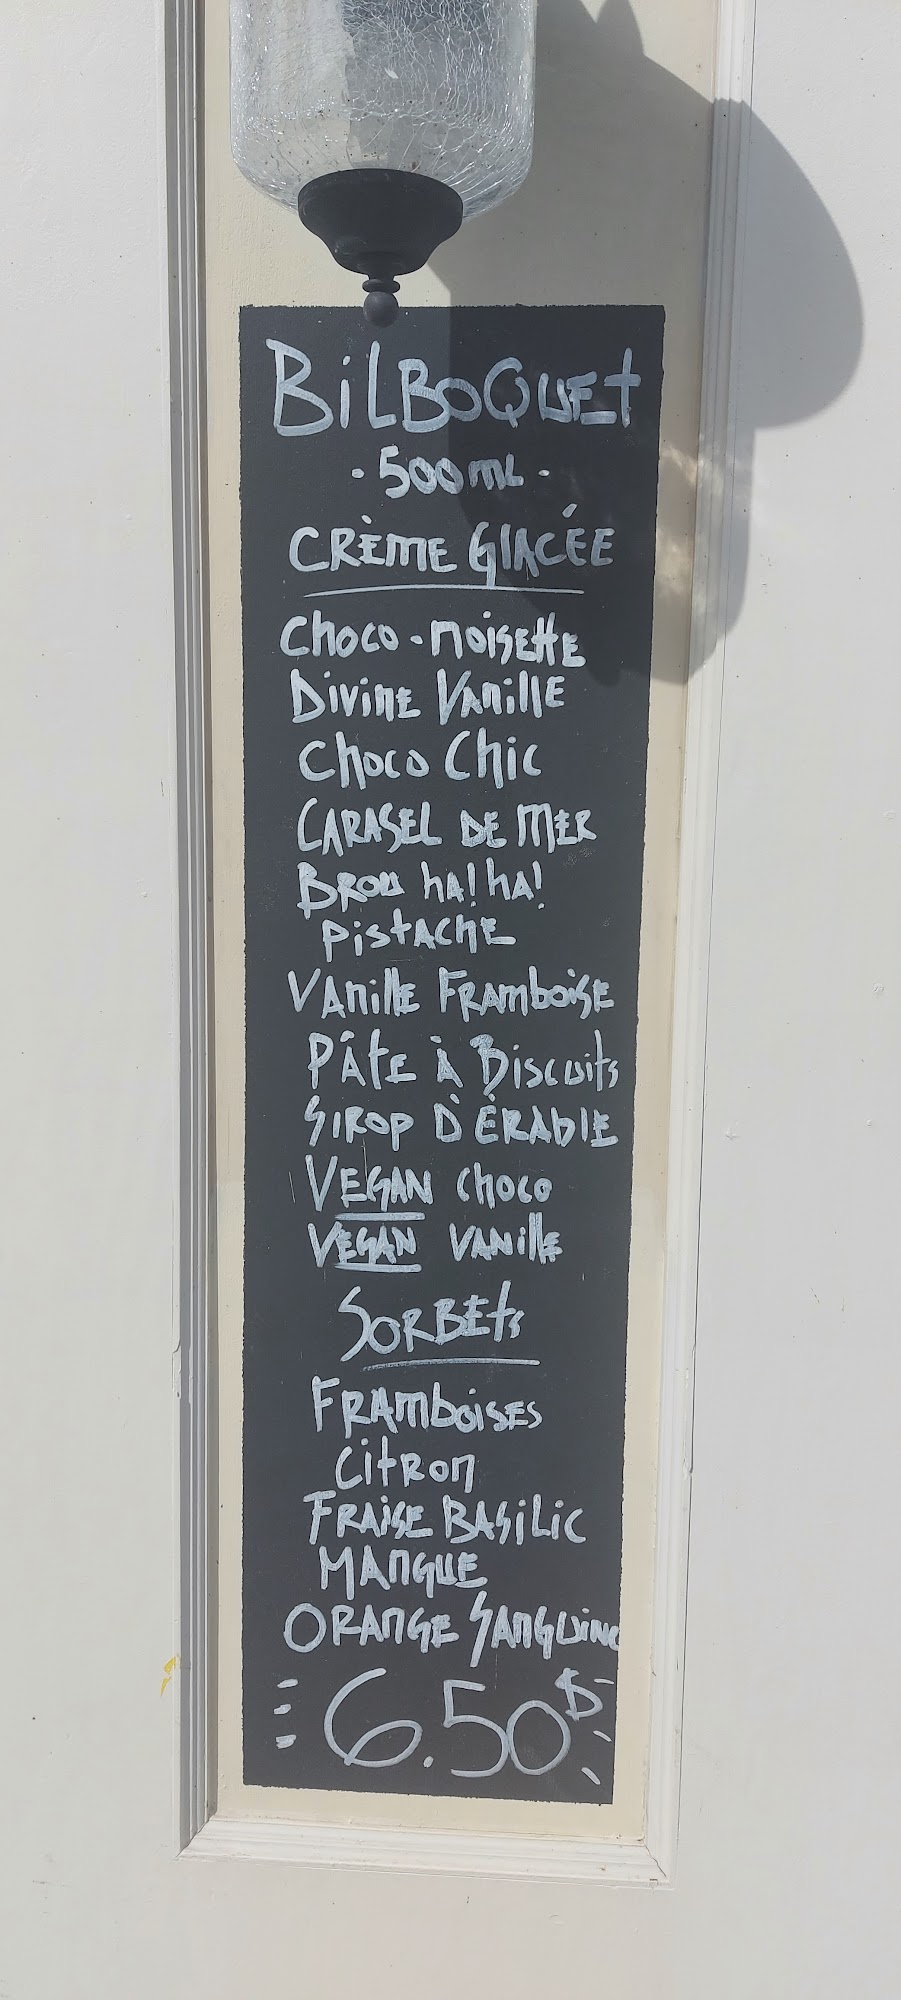 BiLBOQUEt
· 500 mL ·
CRÈME GlACÉE
Choco - noisette
Divine Vanille
Choco Chic
CARASEL DE MER
BROU ha! ha!
PistAChE
VAnille FRAmboise
PÂtE À Biscuits
SIROP D'ÉRAblE
VEGAN choco
VEGAN VAnille
SORBEts
FRAmboises
CitROn
FRAiSE BASiLiC
MAnGUE
ORAnGE SAnGUinE
6.50$